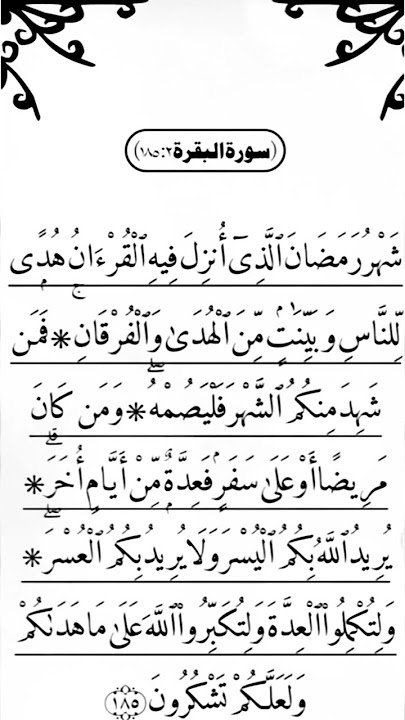 (سورة البقرة ٢:١٨٥)
شَهْرُ رَمَضَانَ ٱلَّذِىٓ أُنزِلَ فِيهِ ٱلْقُرْءَانُ هُدًى
لِّلنَّاسِ وَبَيِّنَٰتٍ مِّنَ ٱلْهُدَىٰ وَٱلْفُرْقَانِ * فَمَن
شَهِدَ مِنكُمُ ٱلشَّهْرَ فَلْيَصُمْهُ * وَمَن كَانَ
مَرِيضًا أَوْ عَلَىٰ سَفَرٍ فَعِدَّةٌ مِّنْ أَيَّامٍ أُخَرَ *
يُرِيدُ ٱللَّهُ بِكُمُ ٱلْيُسْرَ وَلَا يُرِيدُ بِكُمُ ٱلْعُسْرَ *
وَلِتُكْمِلُوا۟ ٱلْعِدَّةَ وَلِتُكَبِّرُوا۟ ٱللَّهَ عَلَىٰ مَا هَدَىٰكُمْ
وَلَعَلَّكُمْ تَشْكُرُونَ ١٨٥